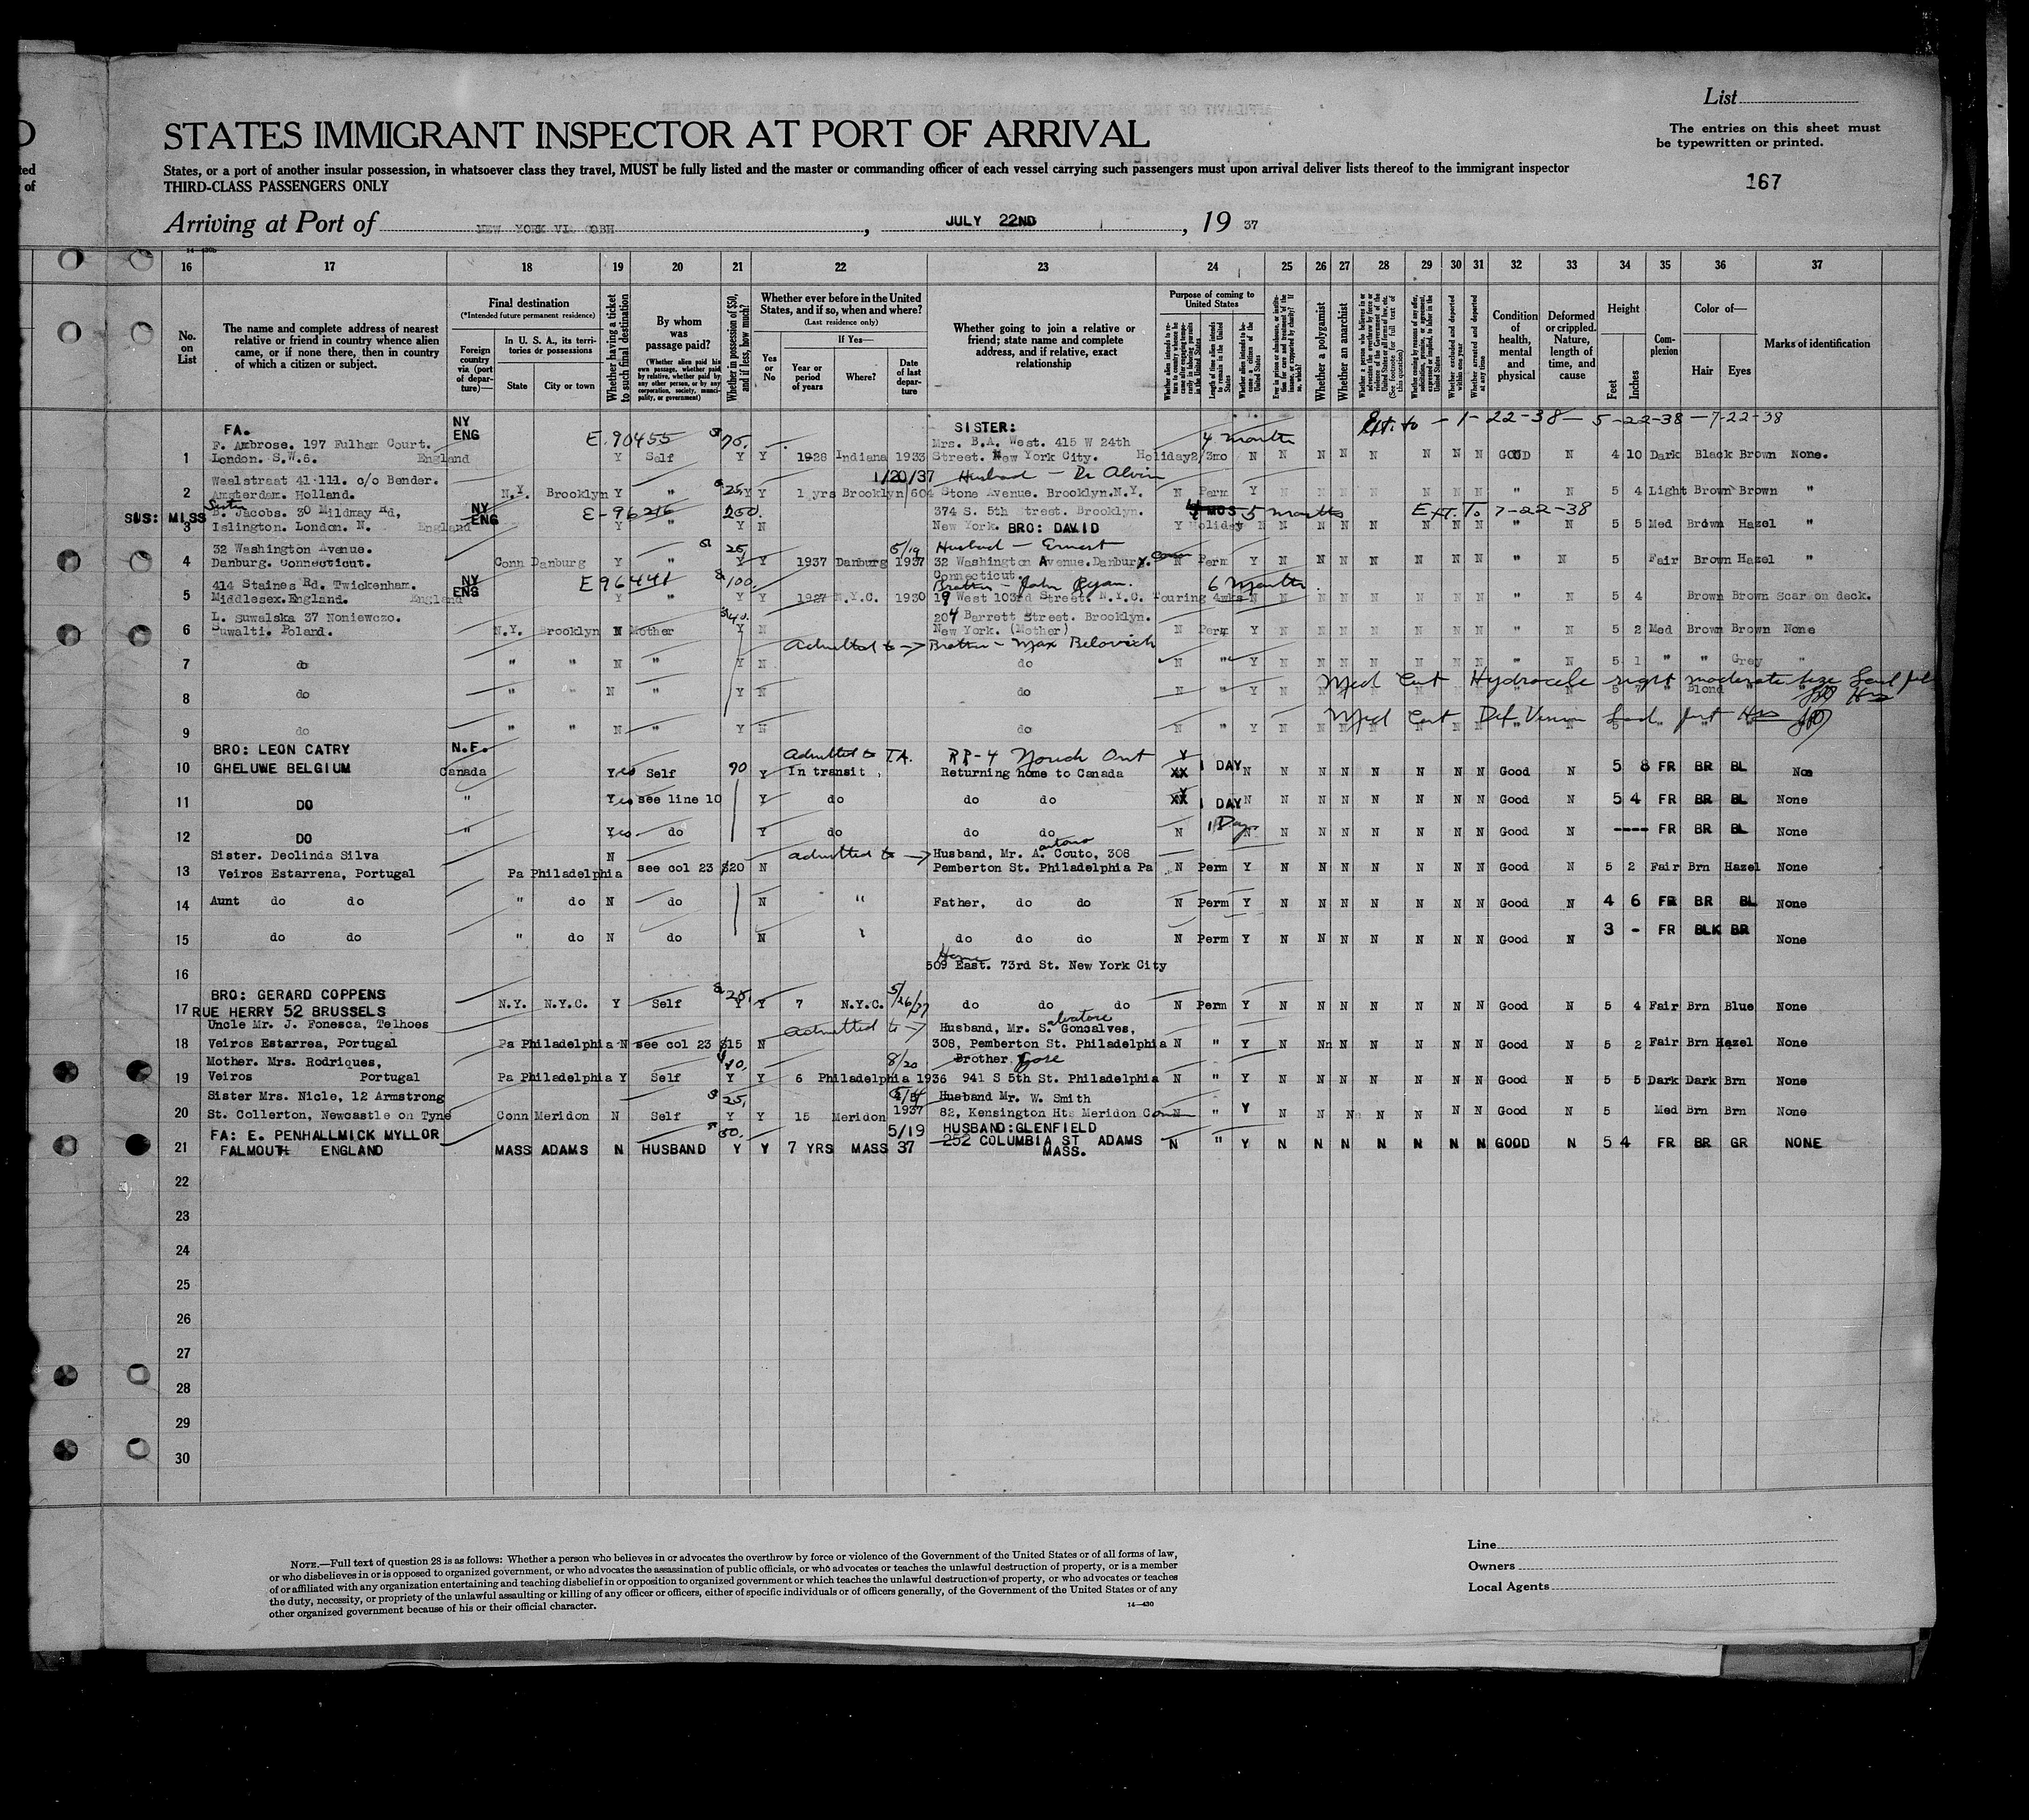 List
STATES IMMIGRANT INSPECTOR AT PORT OF ARRIVAL
The entries on this sheet must
be typewritten or printed.
States, or a port of another insular possession, in whatsoever class they travel, MUST be fully listed and the master or commanding officer of each vessel carrying such passengers must upon arrival deliver lists thereof to the immigrant inspector
THIRD-CLASS PASSENGERS ONLY
167
Arriving at Port of NEW YORK VIA COBH, JULY 22ND, 19 37
16 17 18 19 20 21 22 23 24 25 26 27 28 29 30 31 32 33 34 35 36 37
No. on List
The name and complete address of nearest relative or friend in country whence alien came, or if none there, then in country of which a citizen or subject.
Final destination
(*Intended future permanent residence)
Foreign country via (port of departure)—
In U. S. A., its territories or possessions
State City or town
Whether having a ticket to such final destination
By whom was passage paid?
(Whether alien paid his own passage, whether paid by relative, whether paid by any other person, or by any corporation, society, municipality, or government)
Whether in possession of $50, and if less, how much?
Whether ever before in the United States, and if so, when and where?
(Last residence only)
Yes or No
If Yes—
Year or period of years Where? Date of last departure
Whether going to join a relative or friend; state name and complete address, and if relative, exact relationship
Purpose of coming to United States
Whether a polygamist
Whether an anarchist
Condition of health, mental and physical
Deformed or crippled. Nature, length of time, and cause
Height
Feet Inches
Complexion
Color of—
Hair Eyes
Marks of identification
FA. NY ENG E.90455 $75. SISTER: 4 months Ext. to - 1-22-38 - 5-22-38 - 7-22-38
F. Ambrose. 197 Fulham Court. Mrs. B.A. West. 415 W 24th
1 London. S.W.6. England Y Self Y Y 1928 Indiana 1933 Street. New York City. Holiday2/3mo N N N N N N N N GOOD N 4 10 Dark Black Brown None.
Weelstraat 41.111. c/o Bender. 1/20/37 Husband - Dr Alvin
2 Amsterdam. Holland. N.Y. Brooklyn Y " $25 Y Y 1 yrs Brooklyn 604 Stone Avenue. Brooklyn.N.Y. N Perm Y N N N N N N N " N 5 4 Light Brown Brown "
SUS: MISS Sister B. Jacobs. 30 Mildmay Rd, NY ENG E-96216 250. 374 S. 5th Street. Brooklyn. 4 MOS 5 months EXT. TO 7-22-38
3 Islington. London. N. England Y " Y N New York. BRO: DAVID Y Holiday N N N N N N N N " N 5 5 Med Brown Hazel "
32 Washington Avenue. $25, 5/19 Husband - Ernest
4 Danburg. Connecticut. Conn Danburg Y " Y Y 1937 Danburg 1937 32 Washington Avenue.Danbury. Conn N Perm Y N N N N N N N " N 5 Fair Brown Hazel "
Connecticut.
414 Staines Rd. Twickenham. NY ENG E96441 $100. Brother - John Ryan. 6 Months.
5 Middlesex.England. England Y " Y Y 1927 N.Y.C. 1930 19 West 103rd Street. N.Y.C. Touring 4wks N N N N N N N N " N 5 4 Brown Brown Scar on deck.
L. Suwalska 37 Noniewczo. $40. 204 Barrett Street. Brooklyn.
6 Suwalti. Poland. N.Y. Brooklyn N Mother Y N New York. (Mother) N Perm Y N N N N N N N " N 5 2 Med Brown Brown None
Admitted to → Brother - Max Belovich
7 do " " N " Y N do N " Y N N N N N N N " N 5 1 " " Grey "
Med Cert Hydrocele right moderate size
8 do " " N " Y N do N " Y 5 7 Blond
Med Cert Def Vision
9 do " " N " Y N do N " Y
BRO: LEON CATRY N.F. Admitted to T.A. RR-4 Ont
10 GHELUWE BELGIUM Canada Yes Self 90 Y In transit Returning home to Canada Y XX 1 DAY N N N N N N N N Good N 5 8 FR BR BL Noe
11 DO " Yes see line 10 Y do do do Y XX 1 DAY N N N N N N N N Good N 5 4 FR BR BL None
12 DO " Yes do Y do do do N 1 Day N N N N N N N N Good N ---- FR BR BL None
Sister. Deolinda Silva N admitted to → Husband, Mr. A. Couto, 308
13 Veiros Estarrena, Portugal Pa Philadelphia see col 23 $20 N Pemberton St. Philadelphia Pa N Perm Y N N N N N N N Good N 5 2 Fair Brn Hazel None
14 Aunt do do " do N do N " Father, do do N Perm Y N N N N N N N Good N 4 6 FR BR BL None
15 do do " do N do N do do do N Perm Y N N N N N N N Good N 3 - FR BLK BR None
16 Home 509 East. 73rd St. New York City
BRO: GERARD COPPENS $25. 5/26/37
17 RUE HERRY 52 BRUSSELS N.Y. N.Y.C. Y Self Y Y 7 N.Y.C. do do do N Perm Y N N N N N N N Good N 5 4 Fair Brn Blue None
Uncle Mr. J. Fonesca, Telhoes admitted to → Husband, Mr. Salvatore Goncalves,
18 Veiros Estarrea, Portugal Pa Philadelphia N see col 23 $15 N 308, Pemberton St. Philadelphia N " Y N Nn N N N N N Good N 5 2 Fair Brn Hazel None
Mother. Mrs. Rodriques, 8/20 Brother Jose
19 Veiros Portugal Pa Philadelphia Y Self Y Y 6 Philadelphia 1936 941 S 5th St. Philadelphia N " Y N N N N N N N Good N 5 5 Dark Dark Brn None
Sister Mrs. Nicle, 12 Armstrong $25, Husband Mr. W. Smith
20 St. Collerton, Newcastle on Tyne Conn Meridon N Self Y Y 15 Meridon 1937 82, Kensington Hts Meridon Conn N " Y N N N N N N N Good N 5 Med Brn Brn None
FA: E. PENHALLMICK MYLLOR $50. 5/19 HUSBAND:GLENFIELD
21 FALMOUTH ENGLAND MASS ADAMS N HUSBAND Y Y 7 YRS MASS 37 252 COLUMBIA ST ADAMS MASS. N " Y N N N N N N N GOOD N 5 4 FR BR GR NONE
22
23
24
25
26
27
28
29
30
NOTE.—Full text of question 28 is as follows: Whether a person who believes in or advocates the overthrow by force or violence of the Government of the United States or of all forms of law,
or who disbelieves in or is opposed to organized government, or who advocates the assassination of public officials, or who advocates or teaches the unlawful destruction of property, or is a member
of or affiliated with any organization entertaining and teaching disbelief in or opposition to organized government or which teaches the unlawful destruction of property, or who advocates or teaches
the duty, necessity, or propriety of the unlawful assaulting or killing of any officer or officers, either of specific individuals or of officers generally, of the Government of the United States or of any
other organized government because of his or their official character.
14—430
Line
Owners
Local Agents